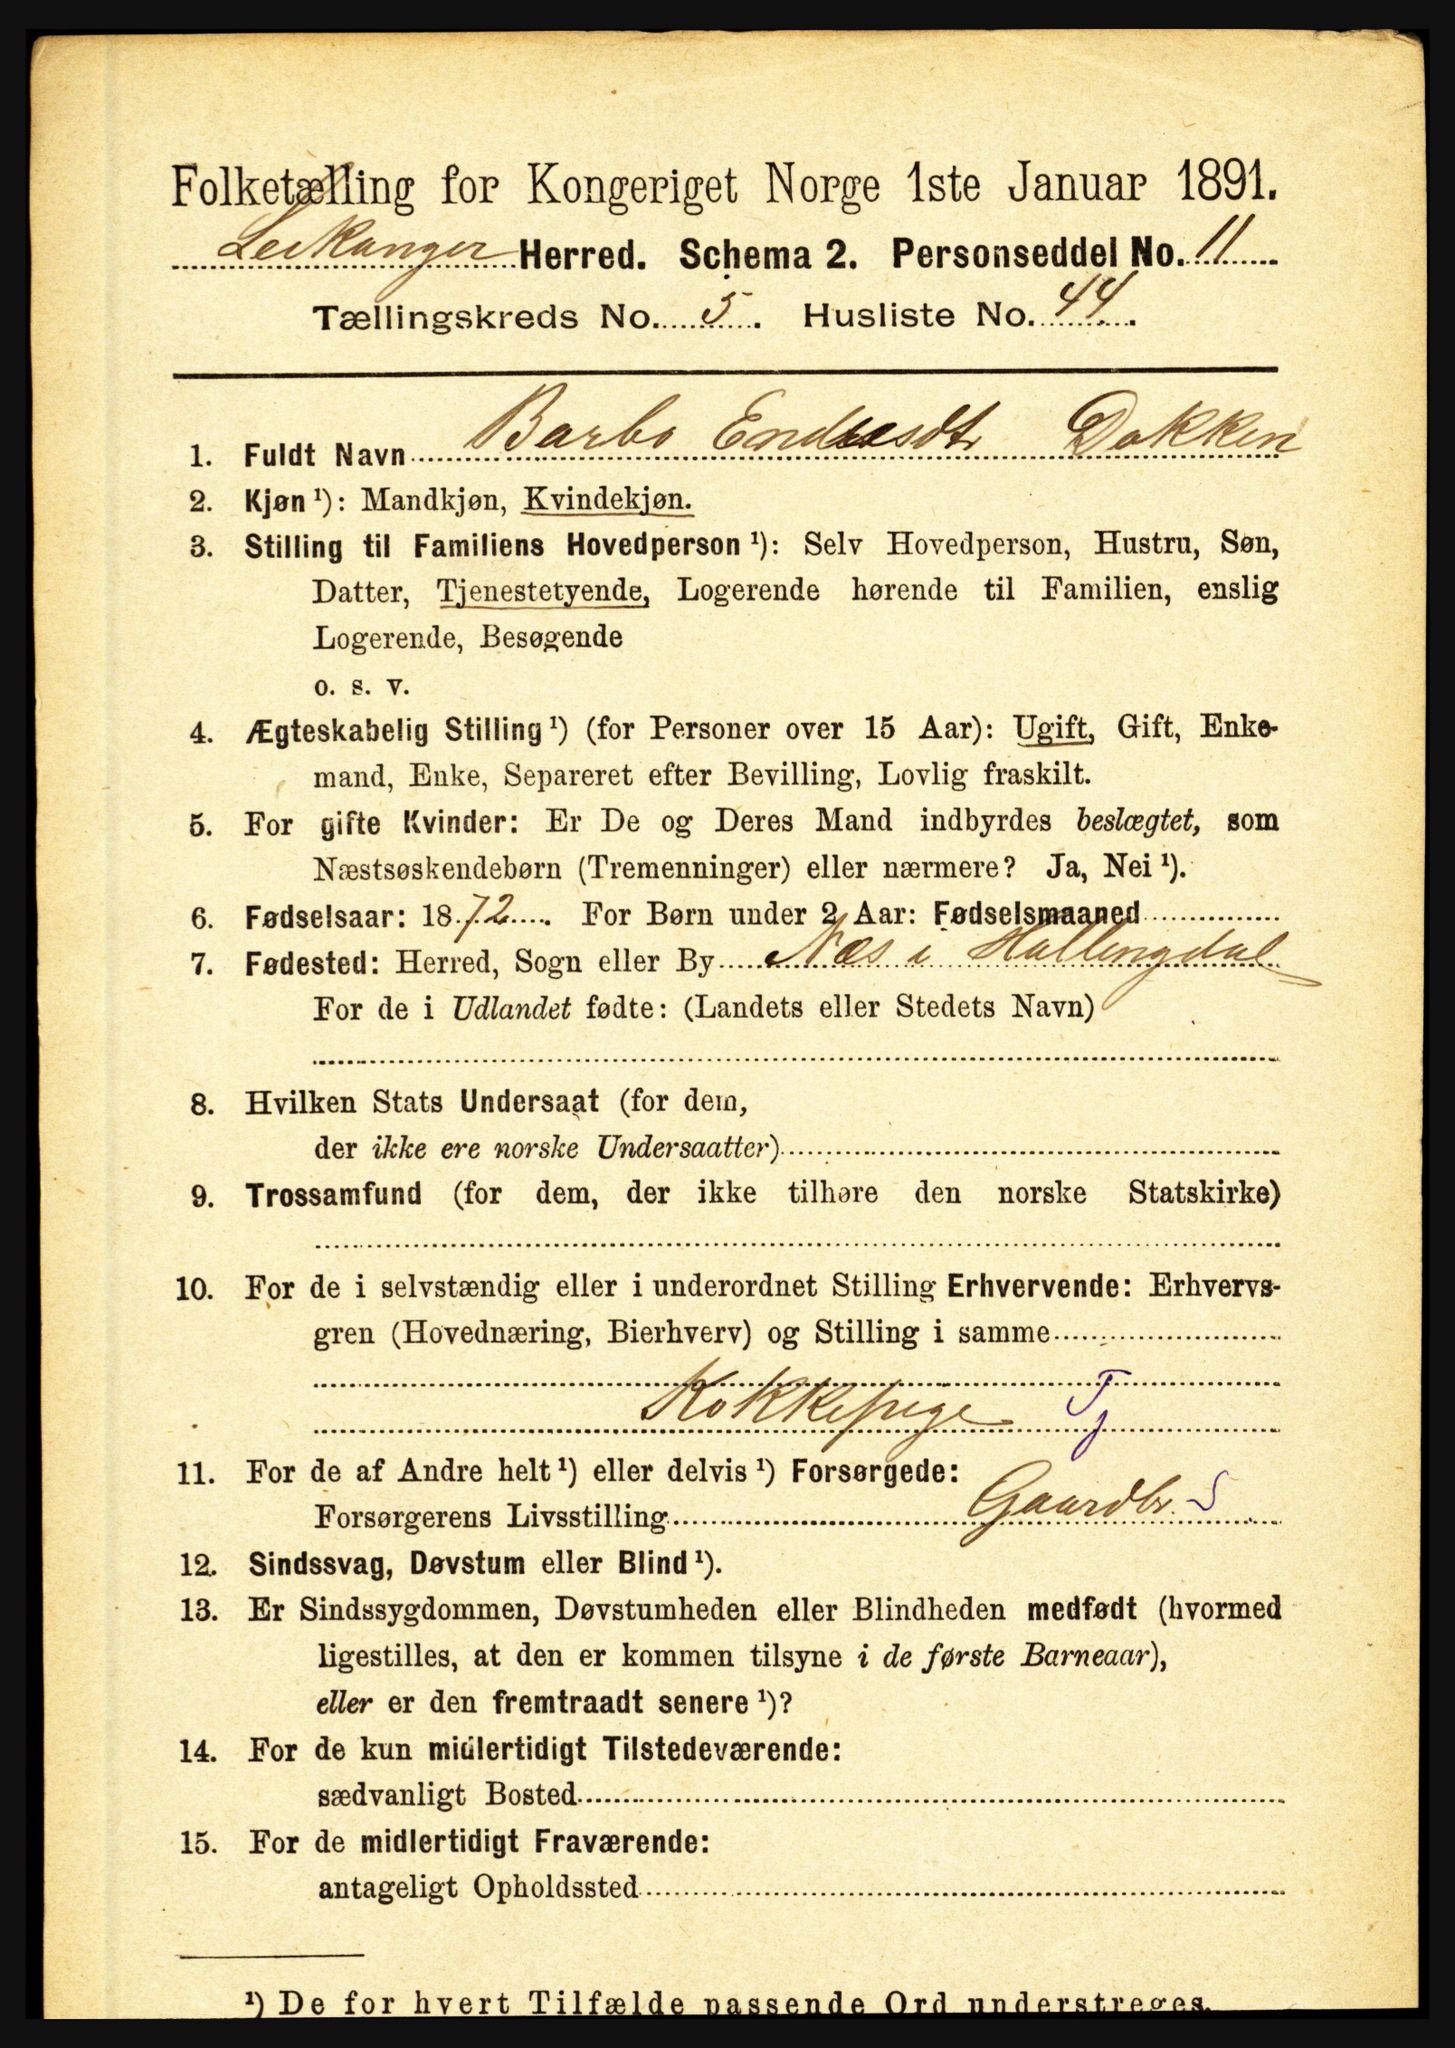 Folketælling for Kongeriget Norge 1ste Januar 1891.
Leikanger Herred. Schema 2. Personseddel No. 11
Tællingskreds No. 5. Husliste No. 44.
1. Fuldt Navn Barbo Endresdtr Dokken
2. Kjøn ¹): Mandkjøn, Kvindekjøn.
3. Stilling til Familiens Hovedperson ¹): Selv Hovedperson, Hustru, Søn,
Datter, Tjenestetyende, Logerende hørende til Familien, enslig
Logerende, Besøgende
o. s. v.
4. Ægteskabelig Stilling ¹) (for Personer over 15 Aar): Ugift, Gift, Enke-
mand, Enke, Separeret efter Bevilling, Lovlig fraskilt.
5. For gifte Kvinder: Er De og Deres Mand indbyrdes beslægtet, som
Næstsøskendebørn (Tremenninger) eller nærmere? Ja, Nei ¹).
6. Fødselsaar: 1872. For Børn under 2 Aar: Fødselsmaaned
7. Fødested: Herred, Sogn eller By Næs i Hallingdal
For de i Udlandet fødte: (Landets eller Stedets Navn)
8. Hvilken Stats Undersaat (for dem,
der ikke ere norske Undersaatter)
9. Trossamfund (for dem, der ikke tilhøre den norske Statskirke)
10. For de i selvstændig eller i underordnet Stilling Erhvervende: Erhvervs-
gren (Hovednæring, Bierhverv) og Stilling i samme
Kokkepige Tj
11. For de af Andre helt ¹) eller delvis ¹) Forsørgede:
Forsørgerens Livsstilling Gaardbr. S
12. Sindssvag, Døvstum eller Blind ¹).
13. Er Sindssygdommen, Døvstumheden eller Blindheden medfødt (hvormed
ligestilles, at den er kommen tilsyne i de første Barneaar),
eller er den fremtraadt senere ¹)?
14. For de kun midlertidigt Tilstedeværende:
sædvanligt Bosted
15. For de midlertidigt Fraværende:
antageligt Opholdssted
¹) De for hvert Tilfælde passende Ord understreges.